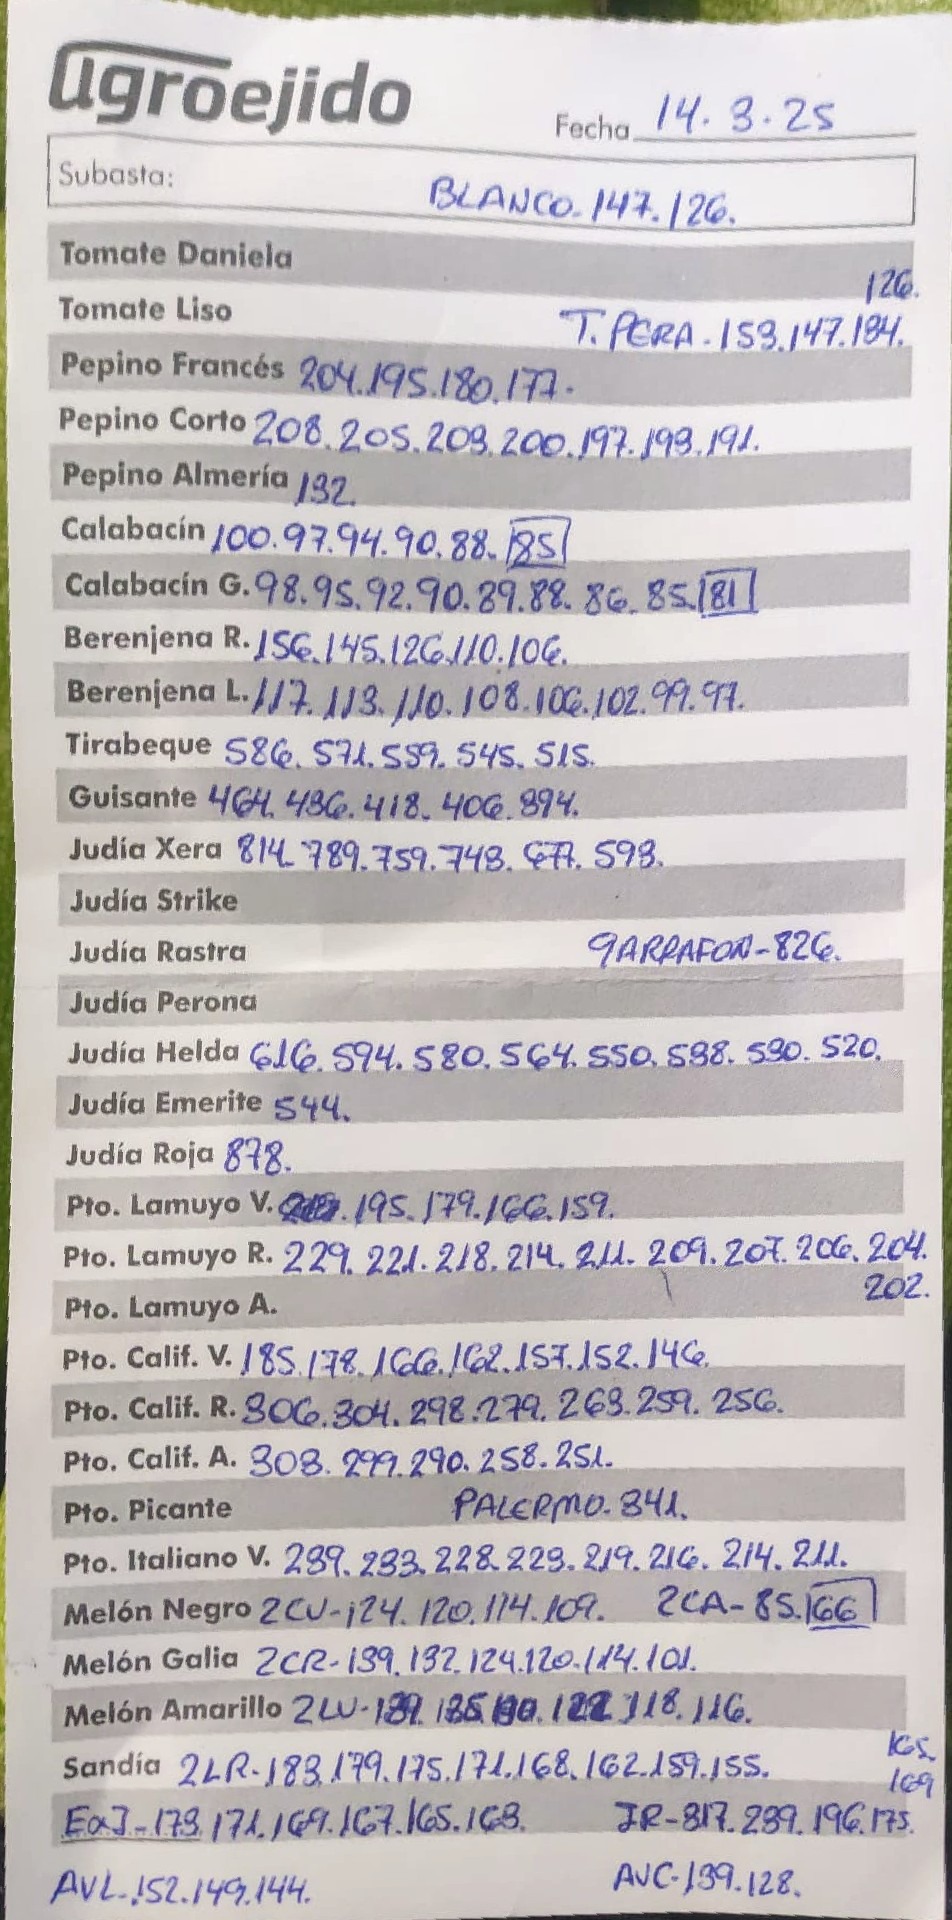 agroejido
Fecha 14.3.25
Subasta: BLANCO.147.126.
Tomate Daniela
126.
Tomate Liso T.PERA.153.147.134.
Pepino Francés 204.195.180.177.
Pepino Corto 208.205.203.200.197.193.191.
Pepino Almería 132.
Calabacín 100.97.94.90.88.85
Calabacín G. 98.95.92.90.89.88.86.85.81
Berenjena R. 156.145.126.110.106.
Berenjena L. 117.113.110.108.106.102.99.97.
Tirabeque 586.571.559.545.515.
Guisante 464.436.418.406.394.
Judía Xera 814.789.759.743.677.593.
Judía Strike
Judía Rastra GARRAFON-826.
Judía Perona
Judía Helda 616.594.580.564.550.538.530.520.
Judía Emerite 544.
Judía Roja 878.
Pto. Lamuyo V. 195.179.166.159.
Pto. Lamuyo R. 229.221.218.214.211.209.207.206.204.
202.
Pto. Lamuyo A.
Pto. Calif. V. 185.178.166.162.157.152.146.
Pto. Calif. R. 306.304.298.279.263.259.256.
Pto. Calif. A. 303.299.290.258.251.
Pto. Picante PALERMO.341.
Pto. Italiano V. 239.233.228.223.219.216.214.211.
Melón Negro 2CU-124.120.114.109. 2CA-85.66
Melón Galia 2CR-139.132.124.120.114.101.
Melón Amarillo 2LU-139.135.130.122.118.116.
165.
Sandía 2LR-183.179.175.171.168.162.159.155.
169
ExJ-173.171.169.167.165.163. JR-317.239.196.175.
AVL.152.149.144. AVC-139.128.